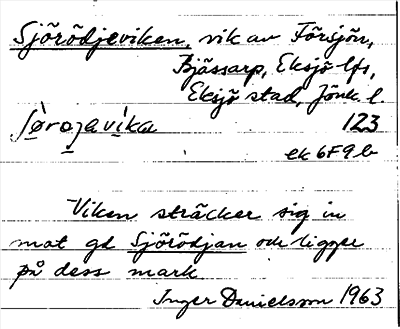 Sjörödjeviken, vik av Försjön,
Bjässarp, Eksjö lfs,
Eksjö stad, Jönk. l.
123
ek 6F9b
Viken sträcker sig in
mot gd Sjörödjan och ligger
på dess mark
Inger Danielsson 1963